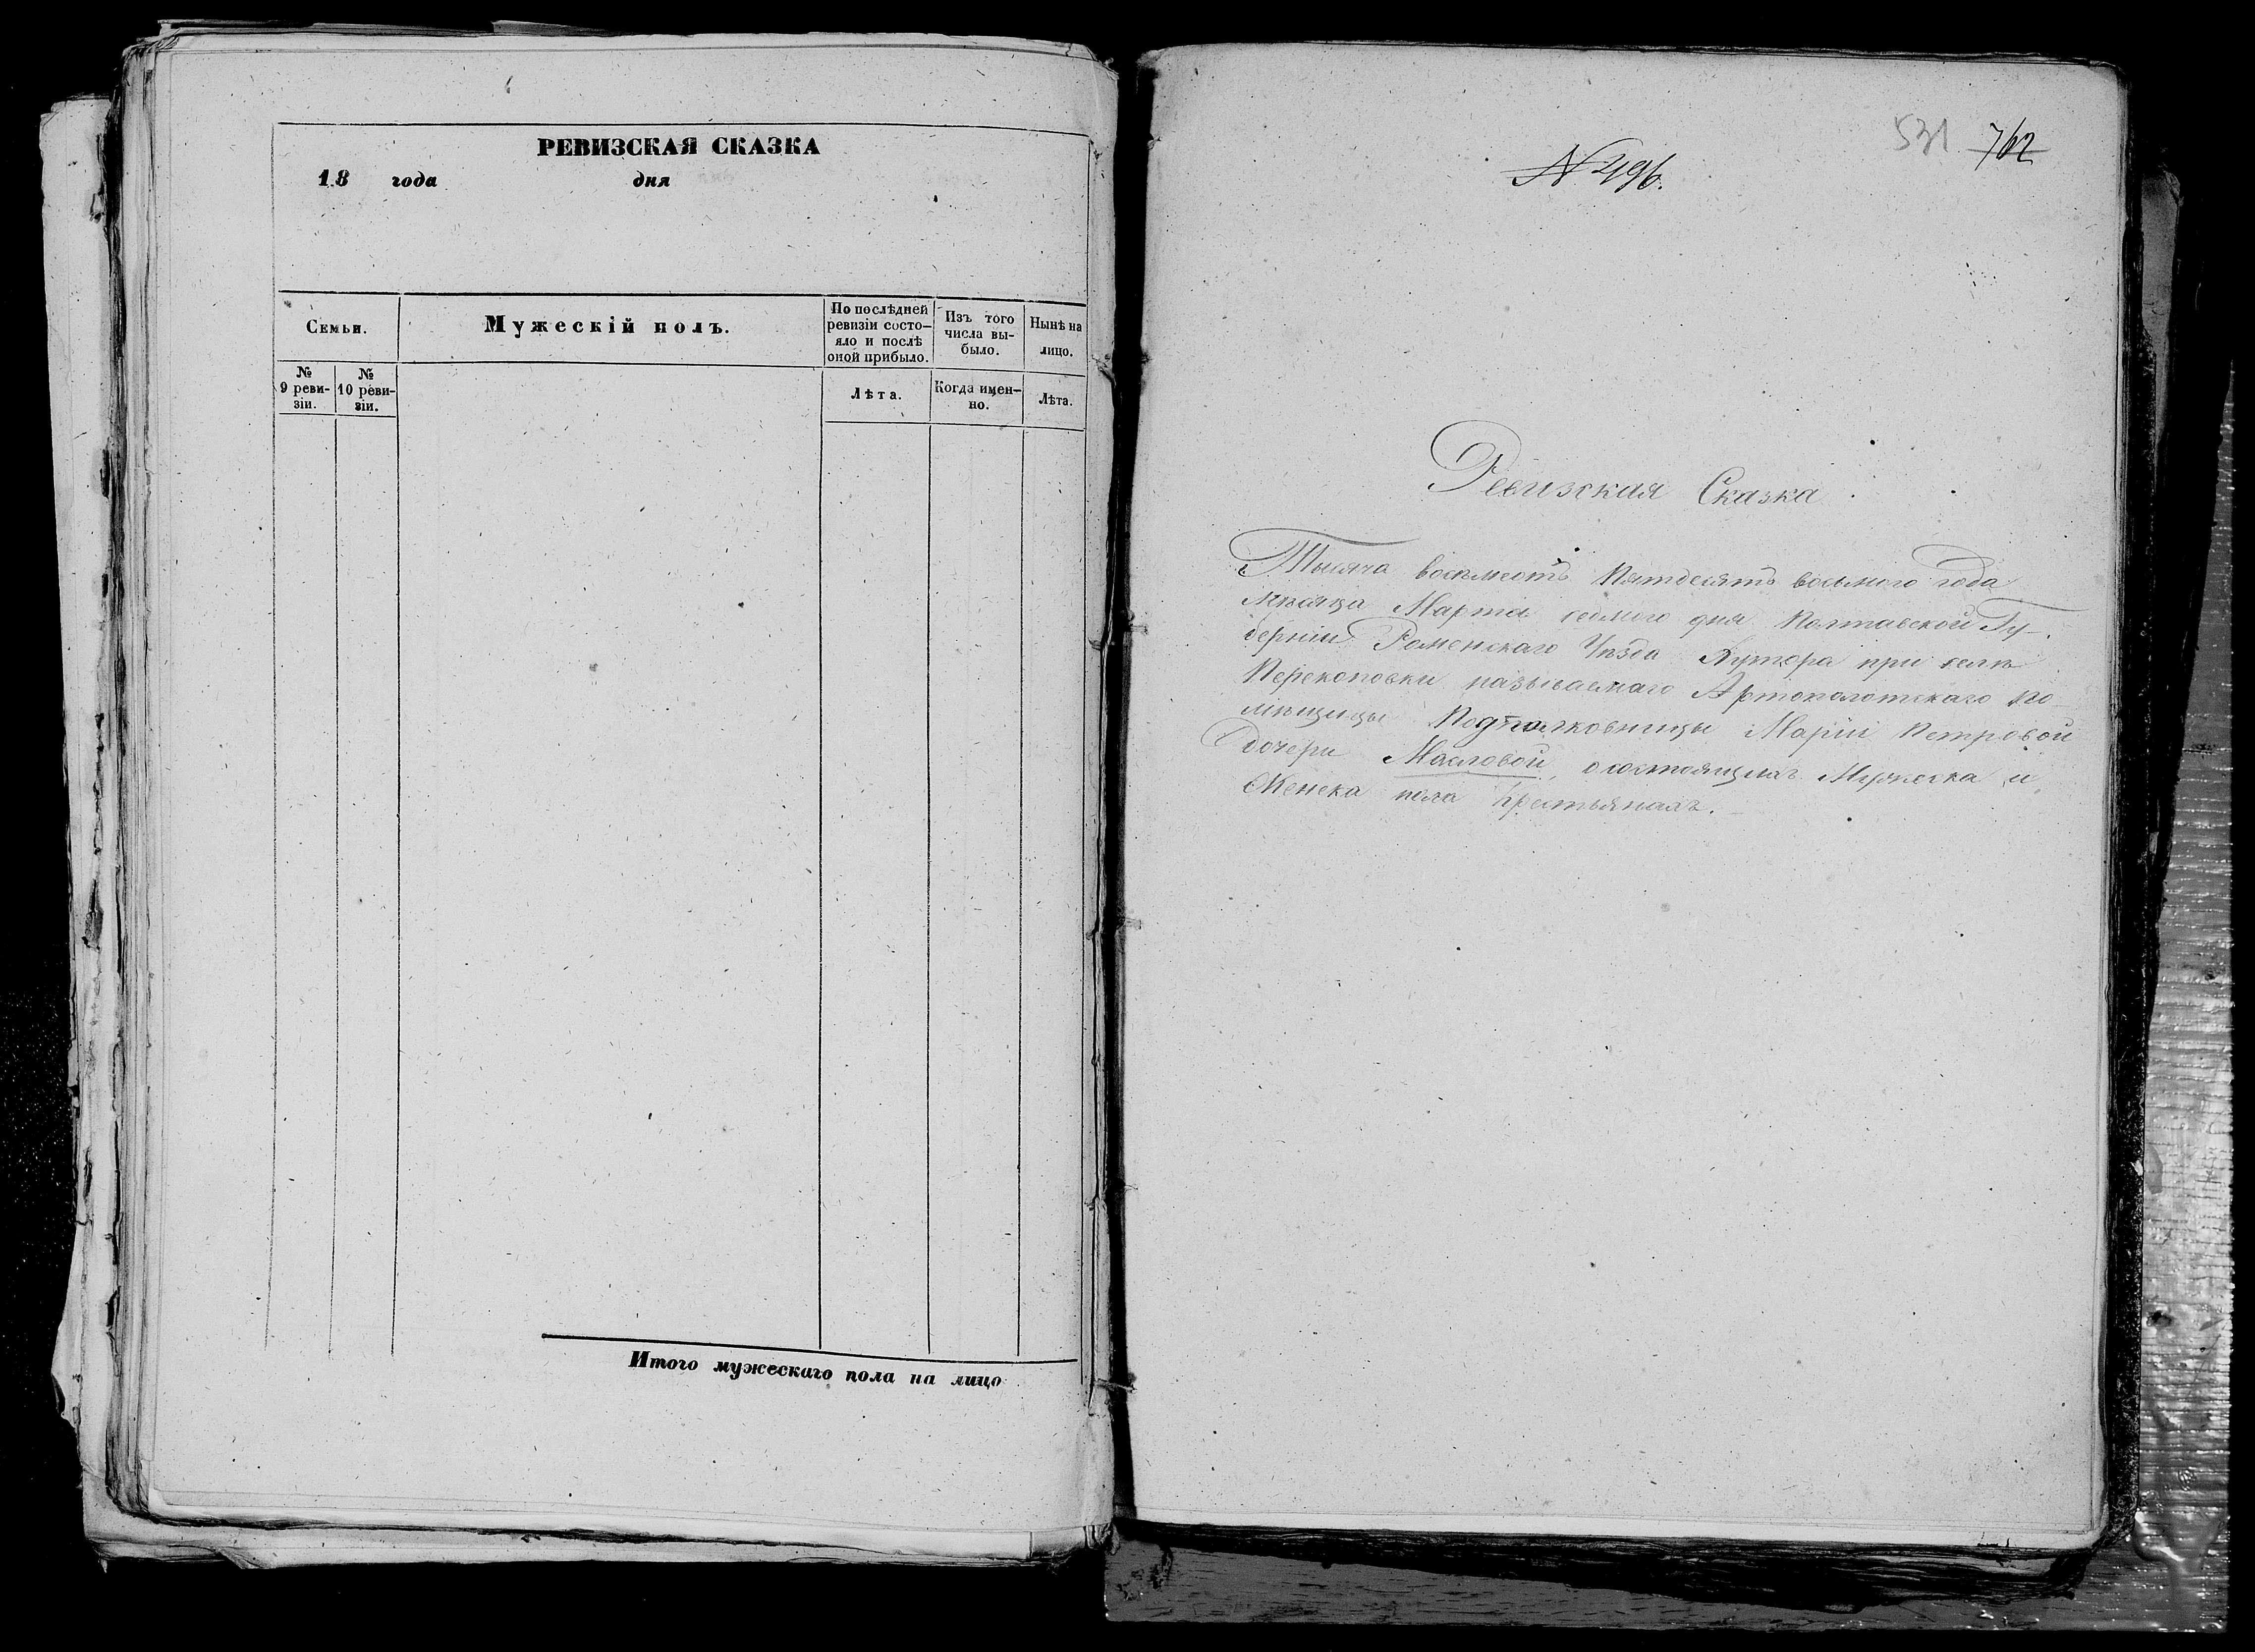 РЕВИЗСКАЯ СКАЗКА
18 года дня
Семьи.
Мужескій полъ.
По послѣдней
ревизіи состо-
яло и послѣ
оной прибыло.
Изъ того
числа вы-
было.
Нынѣ на
лицо.
№
9 реви-
зіи.
№
10 реви-
зіи.
Лѣта.
Когда имен-
но.
Лѣта.
Итого мужескаго пола на лицо
531 762
N 496.
Ревизская Сказка
Тысяча восемсотъ Пятдесятъ восьмого года
Мѣсяца Марта седмого дня Полтавской Гу-
берніи Роменскаго Уѣзда Хутора при селѣ
Перекоповки называемаго Артополотскаго по-
мѣщицы Подполковницы Маріи Петровой
дочери Масловой, о состоящихъ Мужеска и
Женска пола Крестьянахъ.